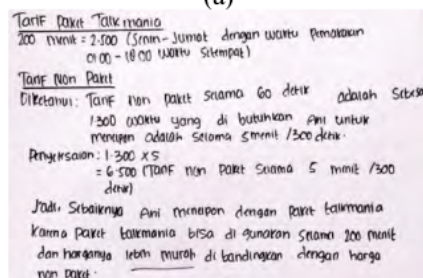 (a)
Tarif paket Talkmania
200 menit = 2.500 (Senin - Jumat dengan waktu pemakaian
01.00 - 18.00 waktu setempat)
Tarif Non Paket
Diketahui : Tarif non paket selama 60 detik adalah sebesar
1.300 waktu yang di butuhkan Ani untuk
menelpon adalah selama 5 menit / 300 detik.
Penyelesaian : 1.300 x 5
= 6.500 (Tarif non paket selama 5 menit / 300
detik)
Jadi, Sebaiknya Ani menelpon dengan paket talkmania
karena paket talkmania bisa di gunakan selama 200 menit
dan harganya lebih murah di bandingkan dengan harga
non paket.